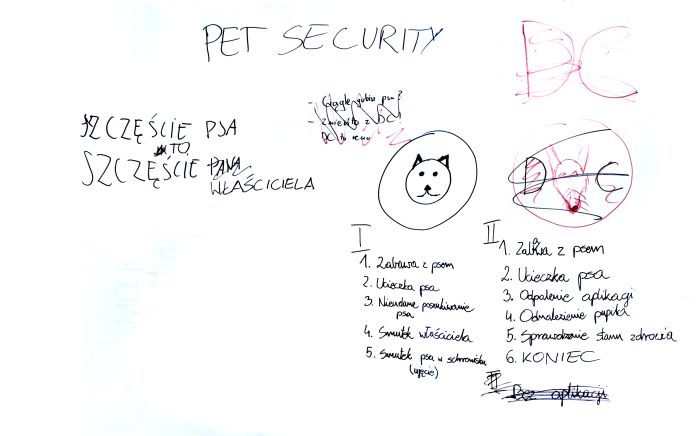 PET SECURITY
DC
- Ciągle gubisz psa?
- Zmień to z DC!
DC to
SZCZĘŚCIE PSA
TO
SZCZĘŚCIE PANA
WŁAŚCICIELA
D C
I
1. Zabawa z psem
2. Ucieczka psa
3. Nieudane poszukiwanie
psa
4. Smutek właściciela
5. Smutek psa w schronisku
(ujęcie)
II
1. Zabawa z psem
2. Ucieczka psa
3. Odpalenie aplikacji
4. Odnalezienie pupila
5. Sprawdzenie stanu zdrowia
6. KONIEC
II
Bez aplikacji